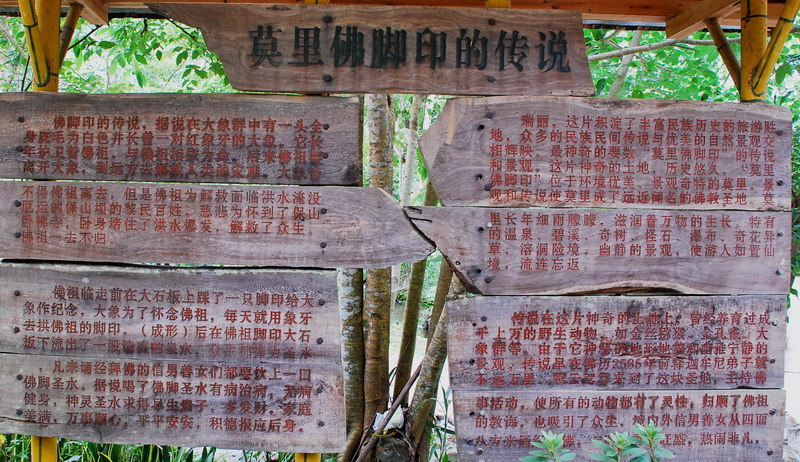 莫里佛脚印的传说
佛脚印的传说，据说在大象群中有一头全
身皮毛为白色并长着一对红象牙的大象，它非
不得佛祖离去，但是佛祖为解救面临洪水淹没
遥远的保山坝的黎民百姓，慈悲为怀到了保山
卧身堵住了洪水爆发，解救了众生
佛祖一去不归。
佛祖临走前在大石板上踩了一只脚印给大
象作纪念，大象为了怀念佛祖，每天就用象牙
去拱佛祖的脚印，（成形）后在佛祖脚印大石
板下流出了一股
凡来诵经拜佛的信男善女们都要饮上一口
佛脚圣水。据说喝了佛脚圣水有病治病，无病
健身，神灵圣水求得早生贵子，多发财，家庭
美满，万事顺心，平平安安，积德报应后身。
瑞丽，这片积淀了丰富民族历史的旅游胜
地，众多的民族民间传说与优美的自然景观交
相辉映。最神奇的要数“莫里佛脚印”的传说
和景观。这片神奇的土地，历史悠久，“莫里
佛脚印”位于环境优美、景观奇特的莫里，景
观和传说使莫里成了远近闻名的佛教圣地
里长年细雨朦朦，滋润着万物的生长。特有
的温泉、碧溪、奇树、怪石、瀑布、奇花异
草，溶洞险境，幽静的景观，使游人如置仙
境，流连忘返
传说在这片神奇的土地上，曾经养育过成
千上万的野生动物，如金丝猕猴、金孔雀、大
象群等。由于它神秘的地形地势和幽雅宁静的
景观，传说里在佛历2585年前释迦牟尼弟子就
不远万里，腾云驾雾来到了这块圣地，主持佛
事活动，使所有的动物都有了灵性，归顺了佛祖
的教诲，也吸引了众生，域内外信男善女从四面
八方来诵经 佛， 旺盛，热闹非凡。